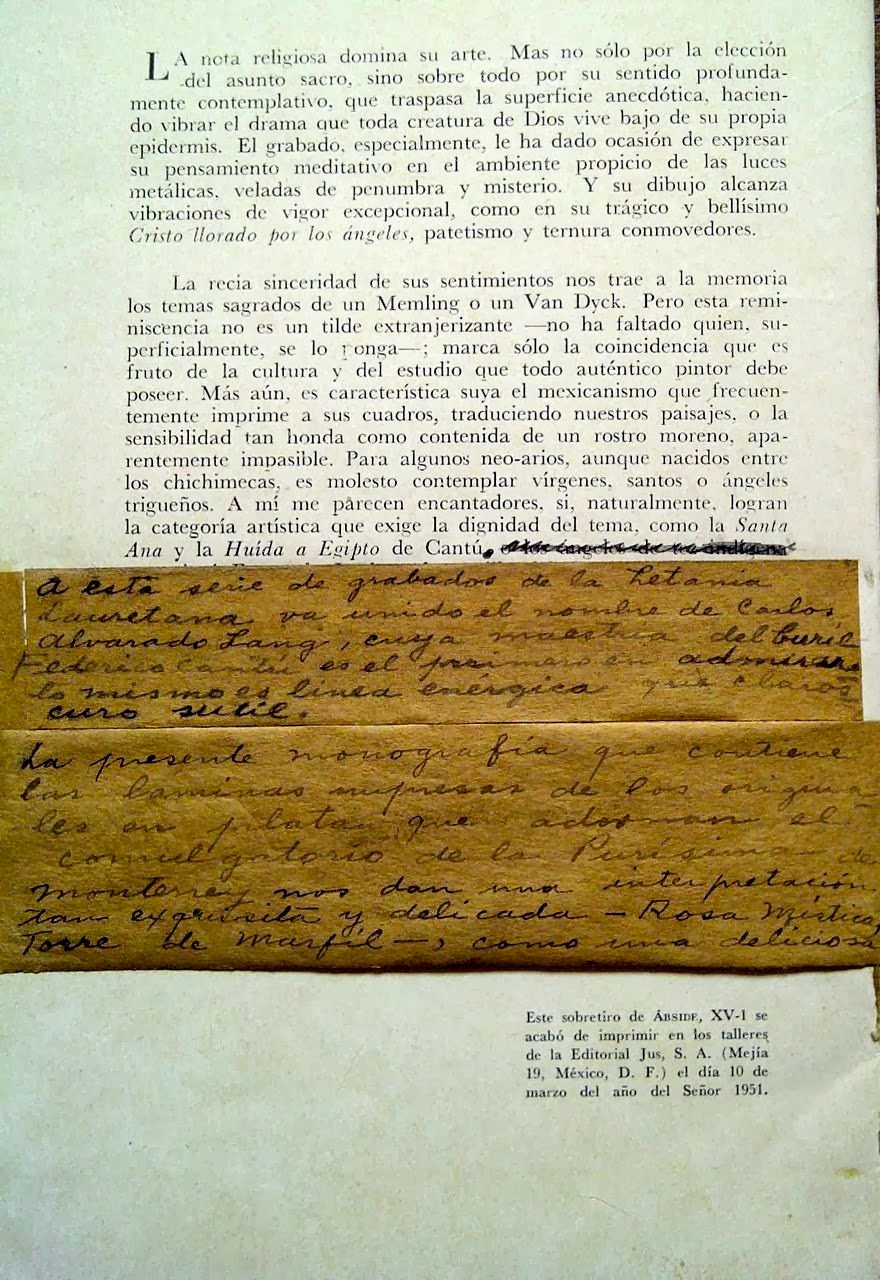 LA nota religiosa domina su arte. Mas no sólo por la elección
del asunto sacro, sino sobre todo por su sentido profunda-
mente contemplativo, que traspasa la superficie anecdótica, hacien-
do vibrar el drama que toda creatura de Dios vive bajo de su propia
epidermis. El grabado, especialmente, le ha dado ocasión de expresar
su pensamiento meditativo en el ambiente propicio de las luces
metálicas, veladas de penumbra y misterio. Y su dibujo alcanza
vibraciones de vigor excepcional, como en su trágico y bellísimo
Cristo llorado por los ángeles, patetismo y ternura conmovedores.
La recia sinceridad de sus sentimientos nos trae a la memoria
los temas sagrados de un Memling o un Van Dyck. Pero esta remi-
niscencia no es un tilde extranjerizante —no ha faltado quien, su-
perficialmente, se lo ponga—; marca sólo la coincidencia que es
fruto de la cultura y del estudio que todo auténtico pintor debe
poseer. Más aún, es característica suya el mexicanismo que frecuen-
temente imprime a sus cuadros, traduciendo nuestros paisajes, o la
sensibilidad tan honda como contenida de un rostro moreno, apa-
rentemente impasible. Para algunos neo-arios, aunque nacidos entre
los chichimecas, es molesto contemplar vírgenes, santos o ángeles
trigueños. A mí me parecen encantadores, si, naturalmente, logran
la categoría artística que exige la dignidad del tema, como la Santa
Ana y la Huída a Egipto de Cantú.
A esta serie de grabados de la Letania
Lauretana va unido el nombre de Carlos
Alvarado Lang, cuya maestria del buril
Federico Cantú es el primero en admirar.
lo mismo es línea enérgica que claros
curo sutil.
La presente monografía que contiene
las laminas impresas de los origina
les en plata que adornan el
comulgatorio de la Purísima de
Monterrey nos dan una interpretación
tan exquisita y delicada — Rosa Mística,
Torre de Marfil —, como una deliciosa
Este sobretiro de ÁBSIDE, XV-1 se
acabó de imprimir en los talleres
de la Editorial Jus, S. A. (Mejía
19, México, D. F.) el día 10 de
marzo del año del Señor 1951.